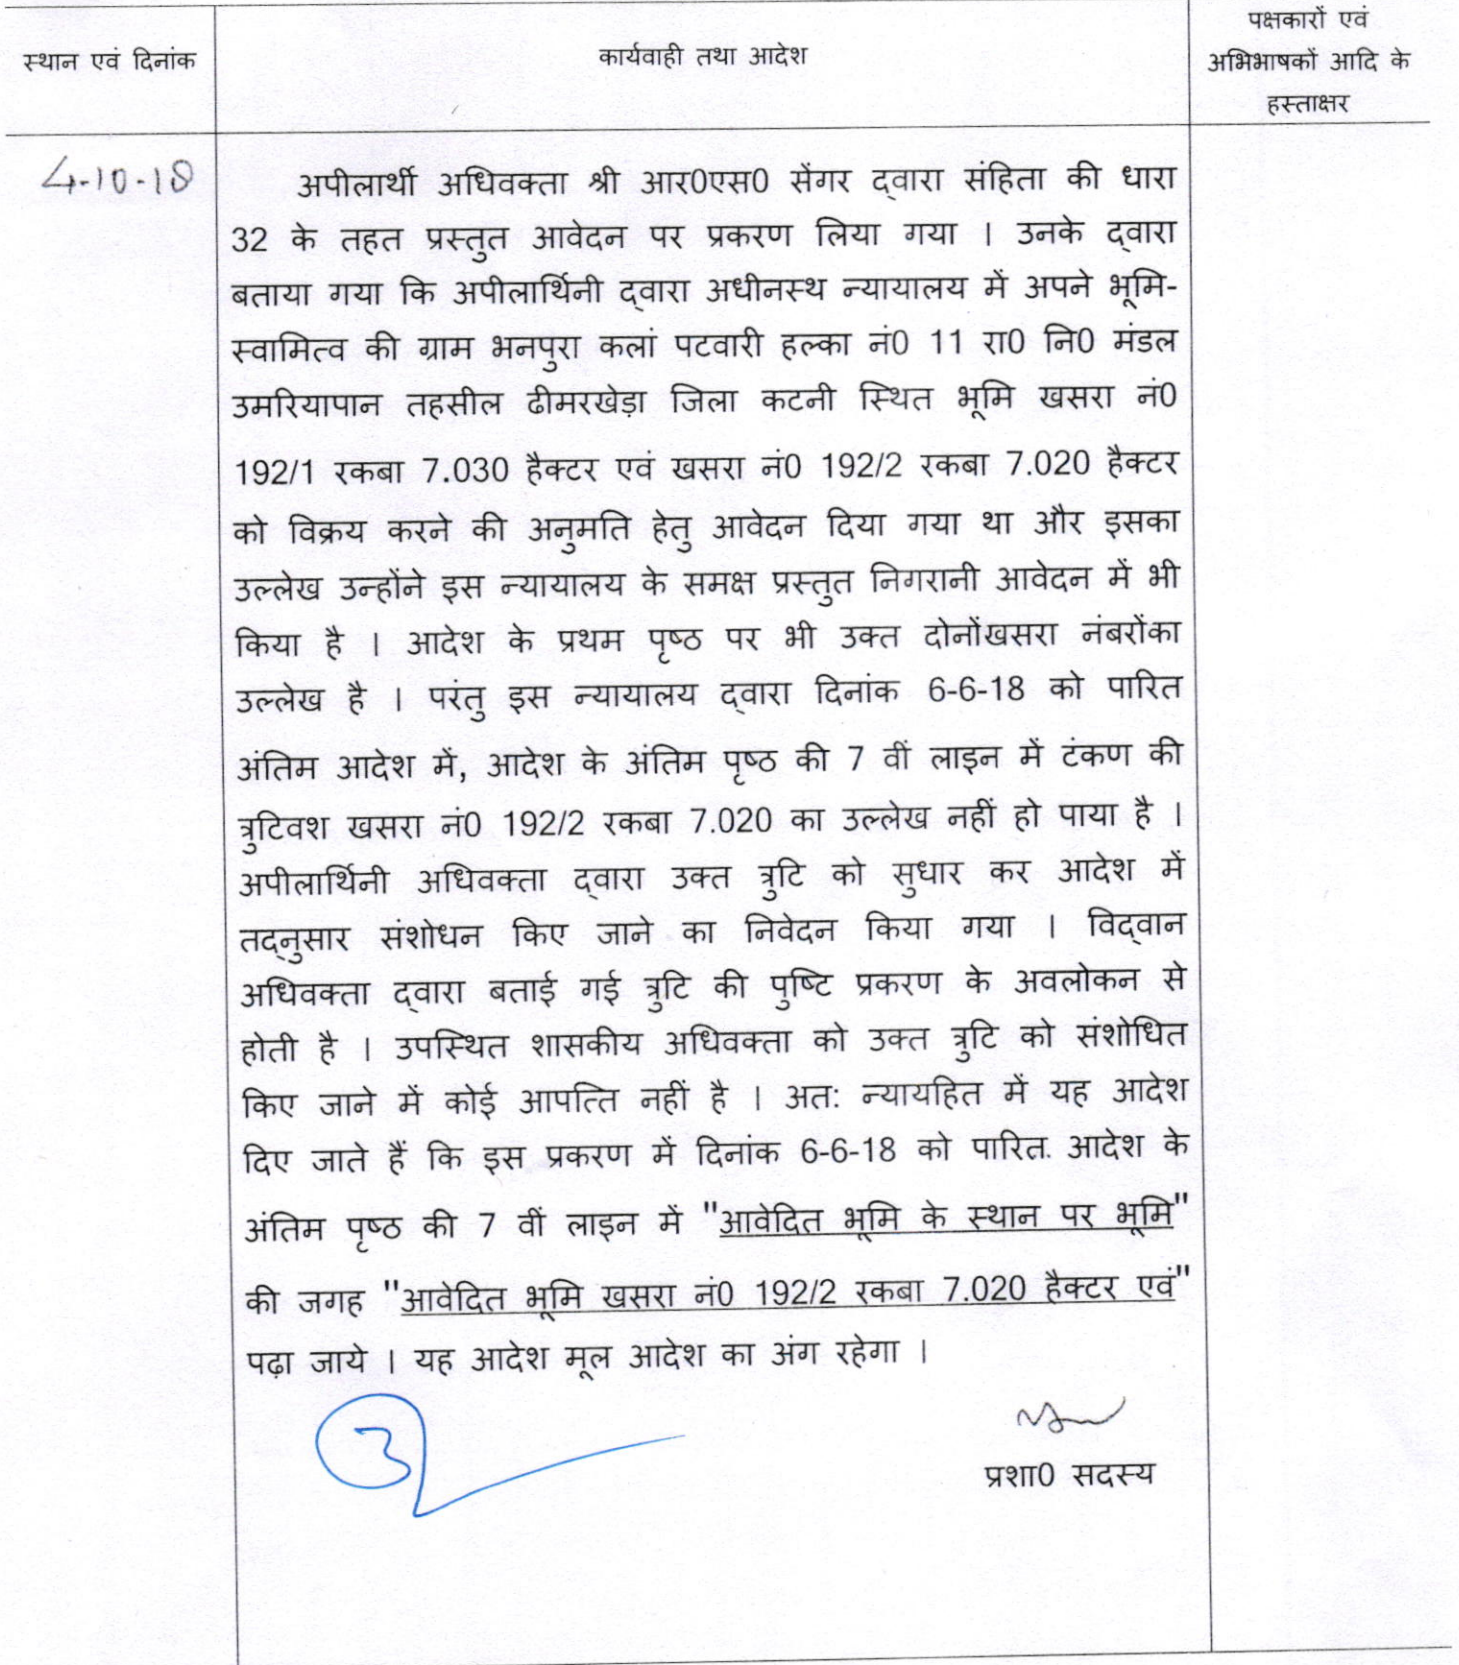 स्थान एवं दिनांक
कार्यवाही तथा आदेश
पक्षकारों एवं
अभिभाषकों आदि के
हस्ताक्षर
4-10-18
अपीलार्थी अधिवक्ता श्री आर0एस0 सेंगर द्वारा संहिता की धारा
32 के तहत प्रस्तुत आवेदन पर प्रकरण लिया गया । उनके द्वारा
बताया गया कि अपीलार्थिनी द्वारा अधीनस्थ न्यायालय में अपने भूमि-
स्वामित्व की ग्राम भनपुरा कलां पटवारी हल्का नं0 11 रा0 नि0 मंडल
उमरियापान तहसील ढीमरखेड़ा जिला कटनी स्थित भूमि खसरा नं0
192/1 रकबा 7.030 हैक्टर एवं खसरा नं0 192/2 रकबा 7.020 हैक्टर
को विक्रय करने की अनुमति हेतु आवेदन दिया गया था और इसका
उल्लेख उन्होंने इस न्यायालय के समक्ष प्रस्तुत निगरानी आवेदन में भी
किया है । आदेश के प्रथम पृष्ठ पर भी उक्त दोनोंखसरा नंबरोंका
उल्लेख है । परंतु इस न्यायालय द्वारा दिनांक 6-6-18 को पारित
अंतिम आदेश में, आदेश के अंतिम पृष्ठ की 7 वीं लाइन में टंकण की
त्रुटिवश खसरा नं0 192/2 रकबा 7.020 का उल्लेख नहीं हो पाया है ।
अपीलार्थिनी अधिवक्ता द्वारा उक्त त्रुटि को सुधार कर आदेश में
तद्नुसार संशोधन किए जाने का निवेदन किया गया । विद्वान
अधिवक्ता द्वारा बताई गई त्रुटि की पुष्टि प्रकरण के अवलोकन से
होती है । उपस्थित शासकीय अधिवक्ता को उक्त त्रुटि को संशोधित
किए जाने में कोई आपत्ति नहीं है । अत: न्यायहित में यह आदेश
दिए जाते हैं कि इस प्रकरण में दिनांक 6-6-18 को पारित. आदेश के
अंतिम पृष्ठ की 7 वीं लाइन में "आवेदित भूमि के स्थान पर भूमि"
की जगह "आवेदित भूमि खसरा नं0 192/2 रकबा 7.020 हैक्टर एवं"
पढ़ा जाये । यह आदेश मूल आदेश का अंग रहेगा ।
प्रशा0 सदस्य